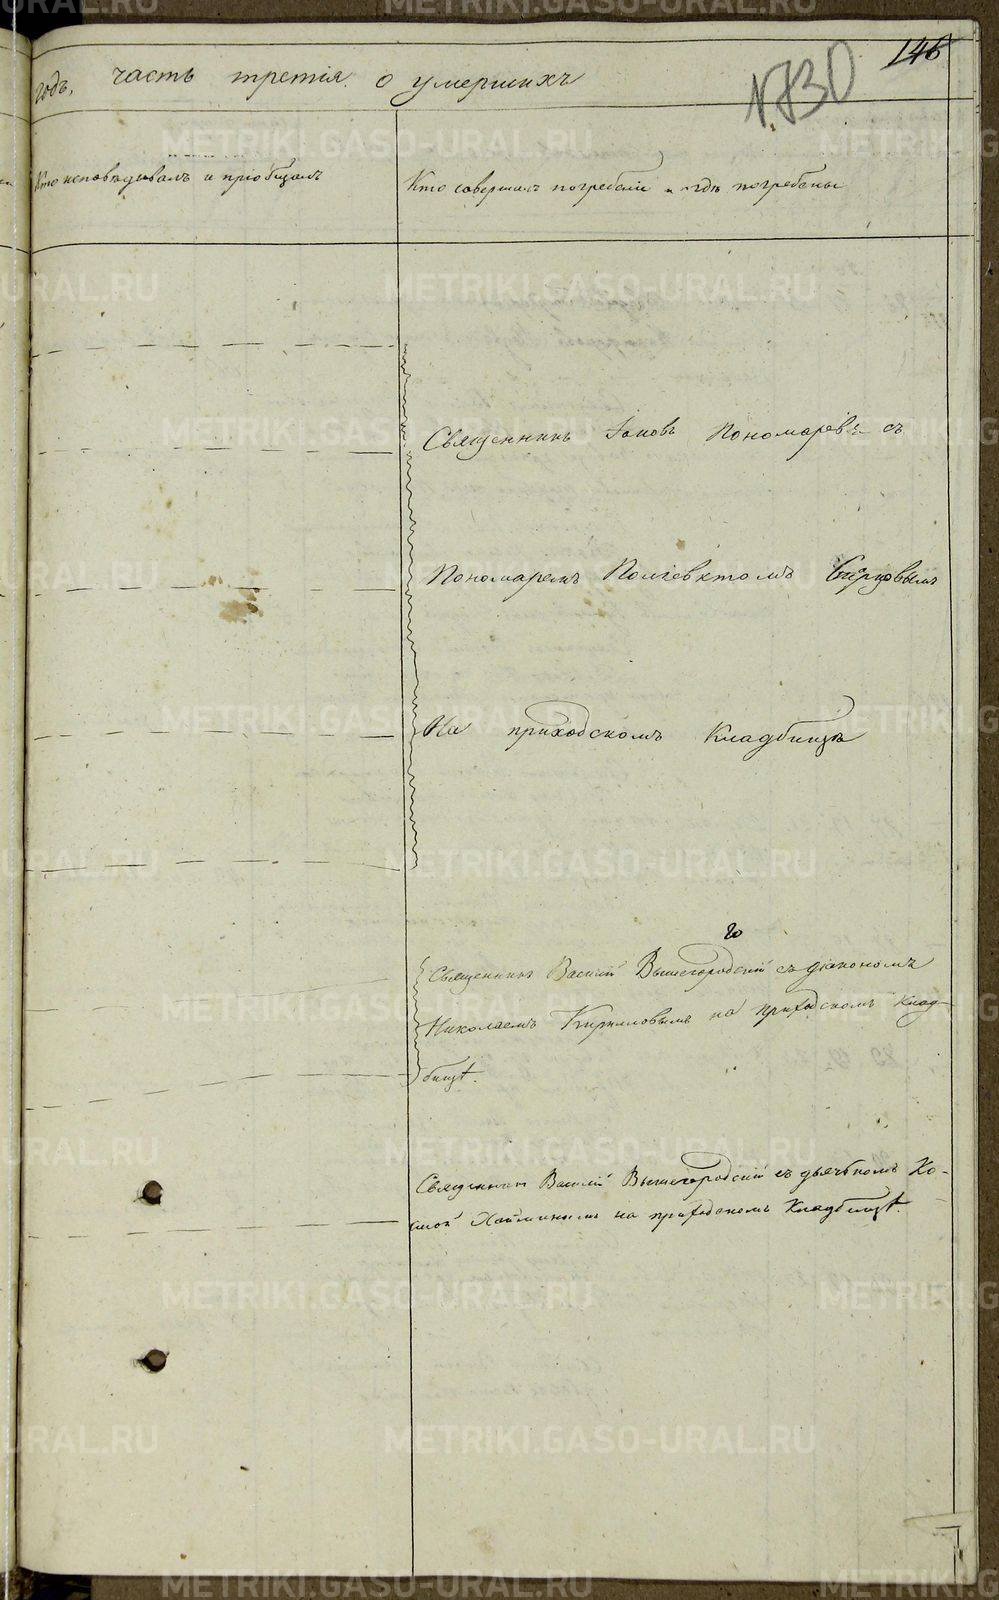 146
№ 730
годъ, часть третія о умершихъ
Кто исповѣдывалъ и пріобщалъ
Кто совершалъ погребеніе и гдѣ погребены
Священникъ Іаковъ Пономаревъ съ
Пономаремъ Полiевктомъ
На приходскомъ Кладбищѣ
Священникъ Василій Вышегородскій съ діакономъ
Николаемъ Кирилловымъ на приходскомъ Клад-
бищѣ.
Священникъ Василій Вышегородскій съ дьячкомъ Ко-
на приходскомъ Кладбищѣ.
METRIKI.GASO-URAL.RU